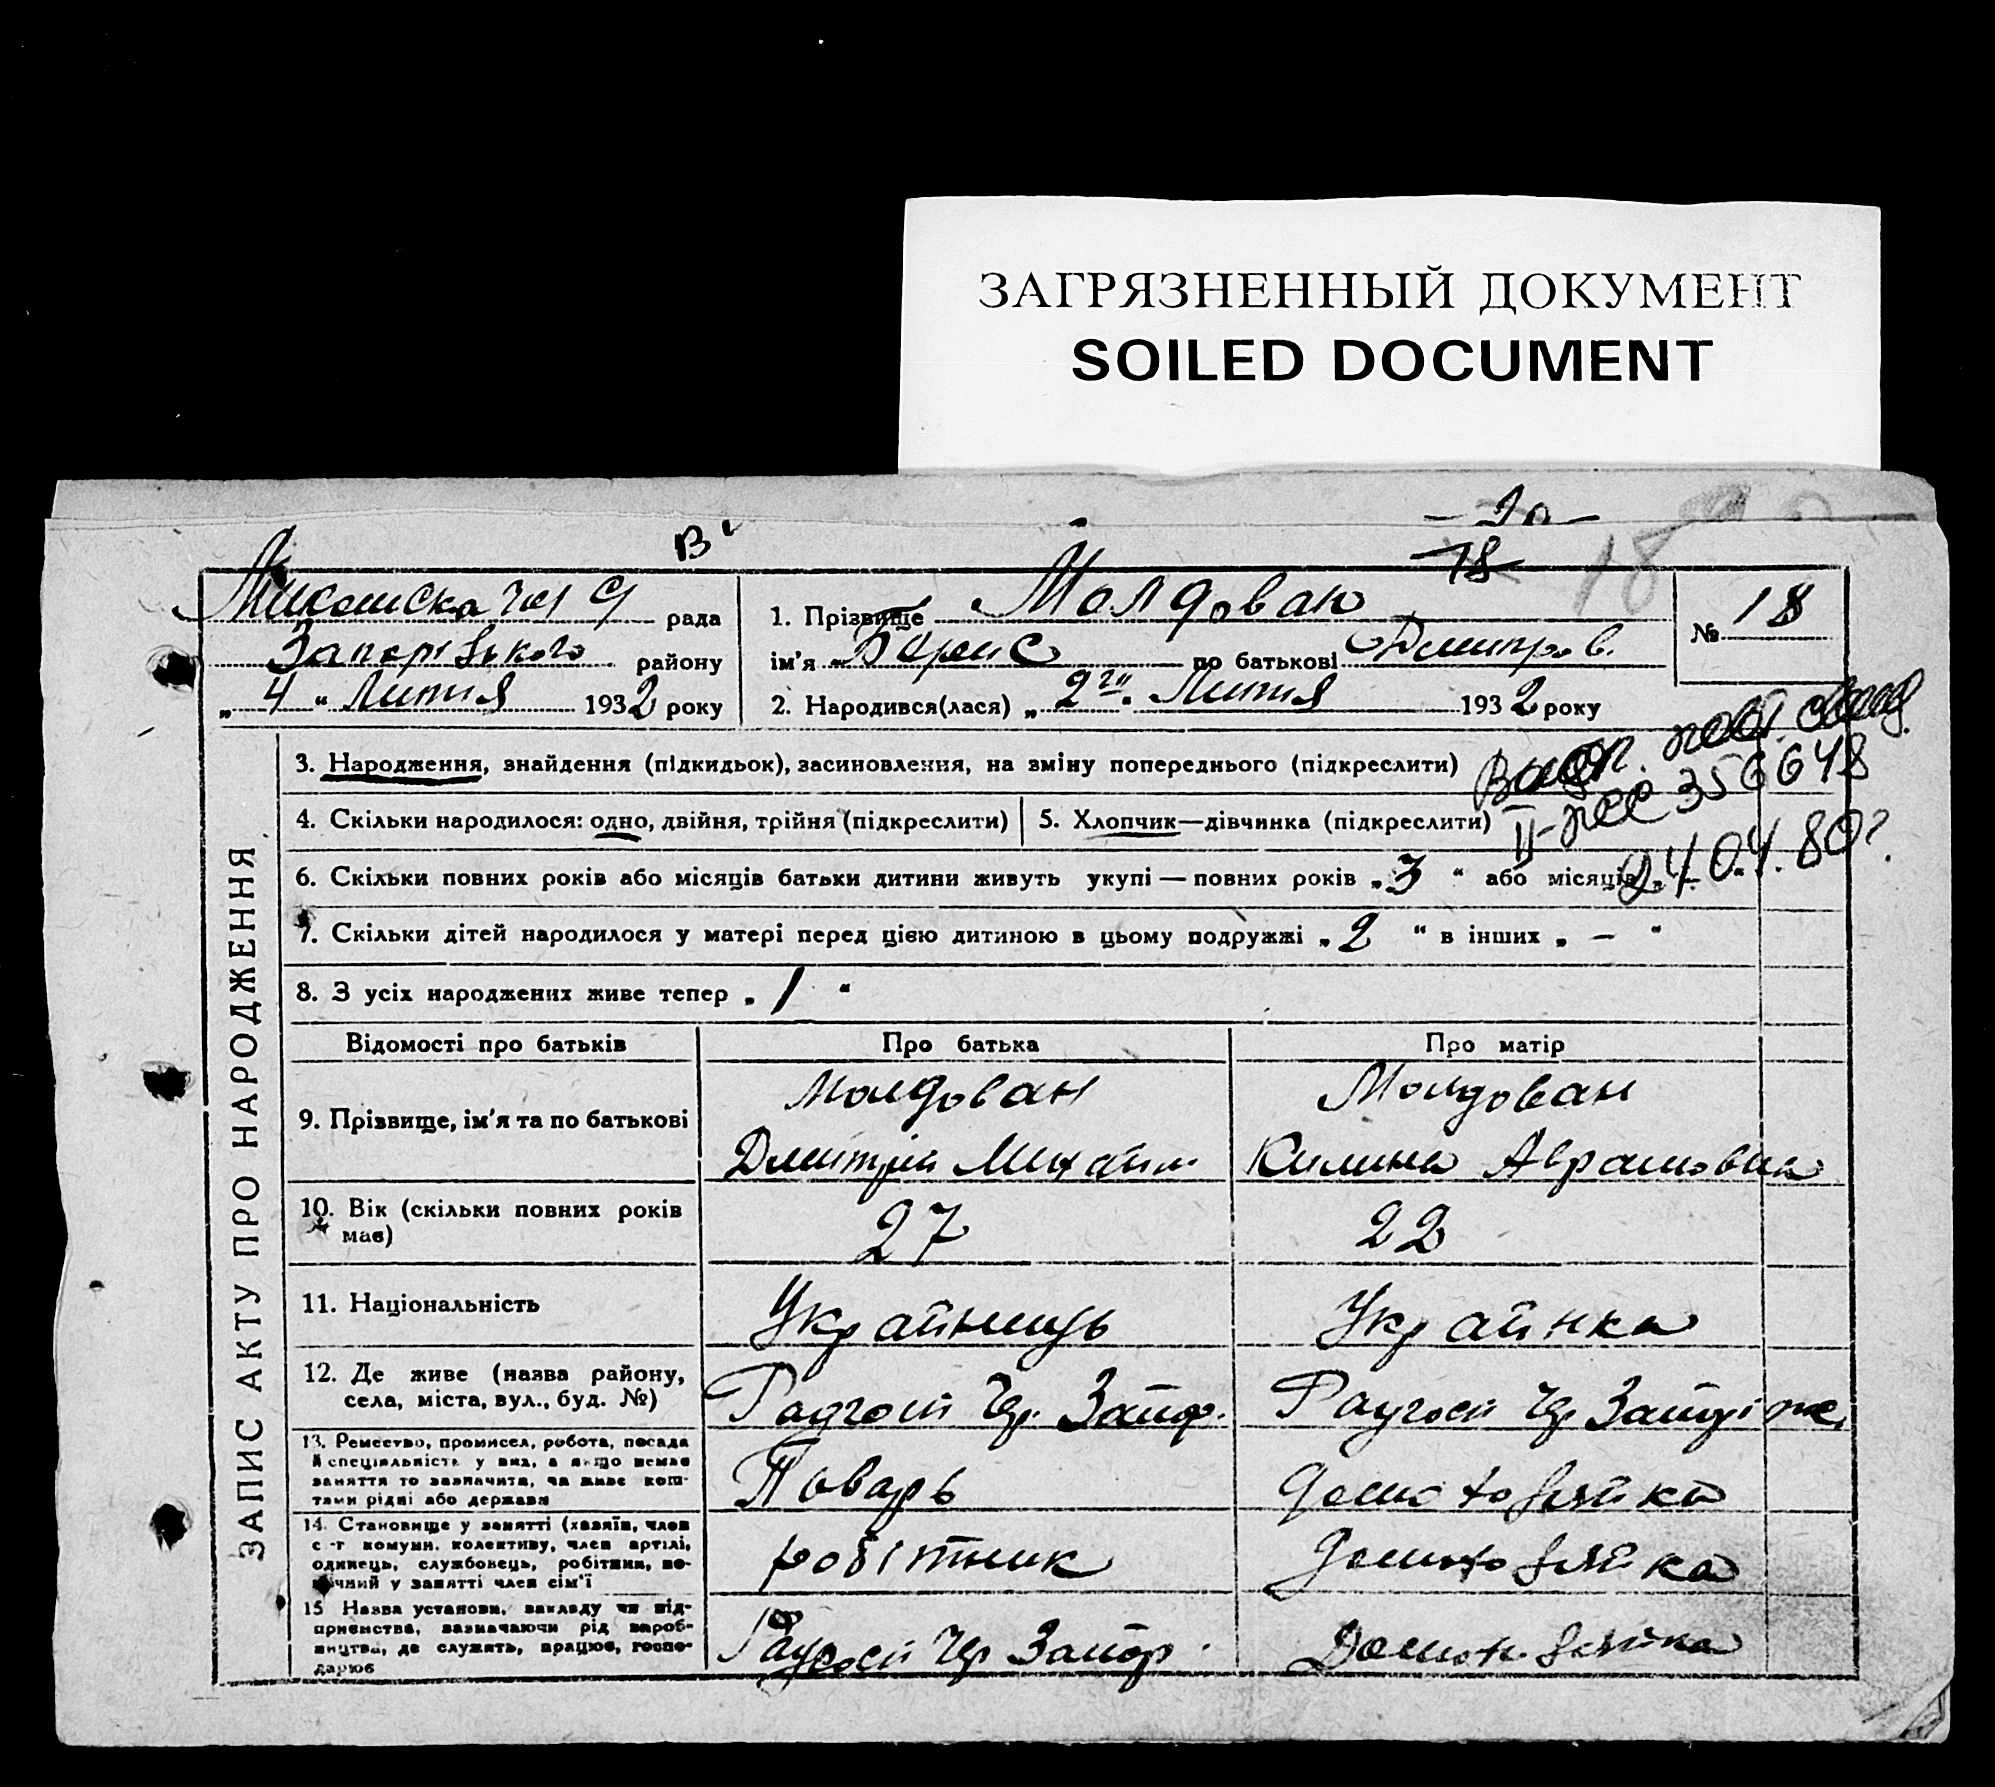 ЗАГРЯЗНЕННЫЙ ДОКУМЕНТ
SOILED DOCUMENT
20
18
18
В
рада
Запорізького району
„ 4 “ Липня 1932 року
1. Прізвище Молдован
ім'я Борис по батькові Дмитров.
2. Народився(лася) „ 2го “ Липня 1932 року
№ 18
ЗАПИС АКТУ ПРО НАРОДЖЕННЯ
3. Народження, знайдення (підкидьок), засиновлення, на зміну попереднього (підкреслити)
II-ЖС 356648
24.04.80г.
4. Скільки народилося: одно, двійня, трійня (підкреслити)
5. Хлопчик—дівчинка (підкреслити)
6. Скільки повних років або місяців батьки дитини живуть укупі — повних років „ 3 “ або місяців
7. Скільки дітей народилося у матері перед цією дитиною в цьому подружжі „ 2 “ в інших „ – “
8. З усіх народжених живе тепер „ 1 “
Відомості про батьків
Про батька
Про матір
9. Прізвище, ім'я та по батькові
Молдован
Дмитрій Михайл.
Молдован
Килина Аврамовна
10. Вік (скільки повних років має)
27
22
11. Національність
Украйнець
Украйнка
12. Де живе (назва району,
села, міста, вул., буд. №)
Радгосп Чр. Запор.
Радгосп Чр Запоріже
13. Ремество, промисел, робота, посада
й спеціяльність у них, а якщо немає
заняття то зазначити, чи живе кош-
тами рідні або держави
Поварь
домохозяйка
14. Становище у занятті (хазяїн, член
с.-г комуни. колективу, член артілі,
одинець, службовець, робітник, по-
мічний у занятті член сім'ї
робітник
домохозяйка
15 Назва установи, закладу чи під-
приємства, зазначаючи рід вироб-
ництва, де служить, працює, госпо-
дарює
Радгосп Чр Запор.
Домохозяйка